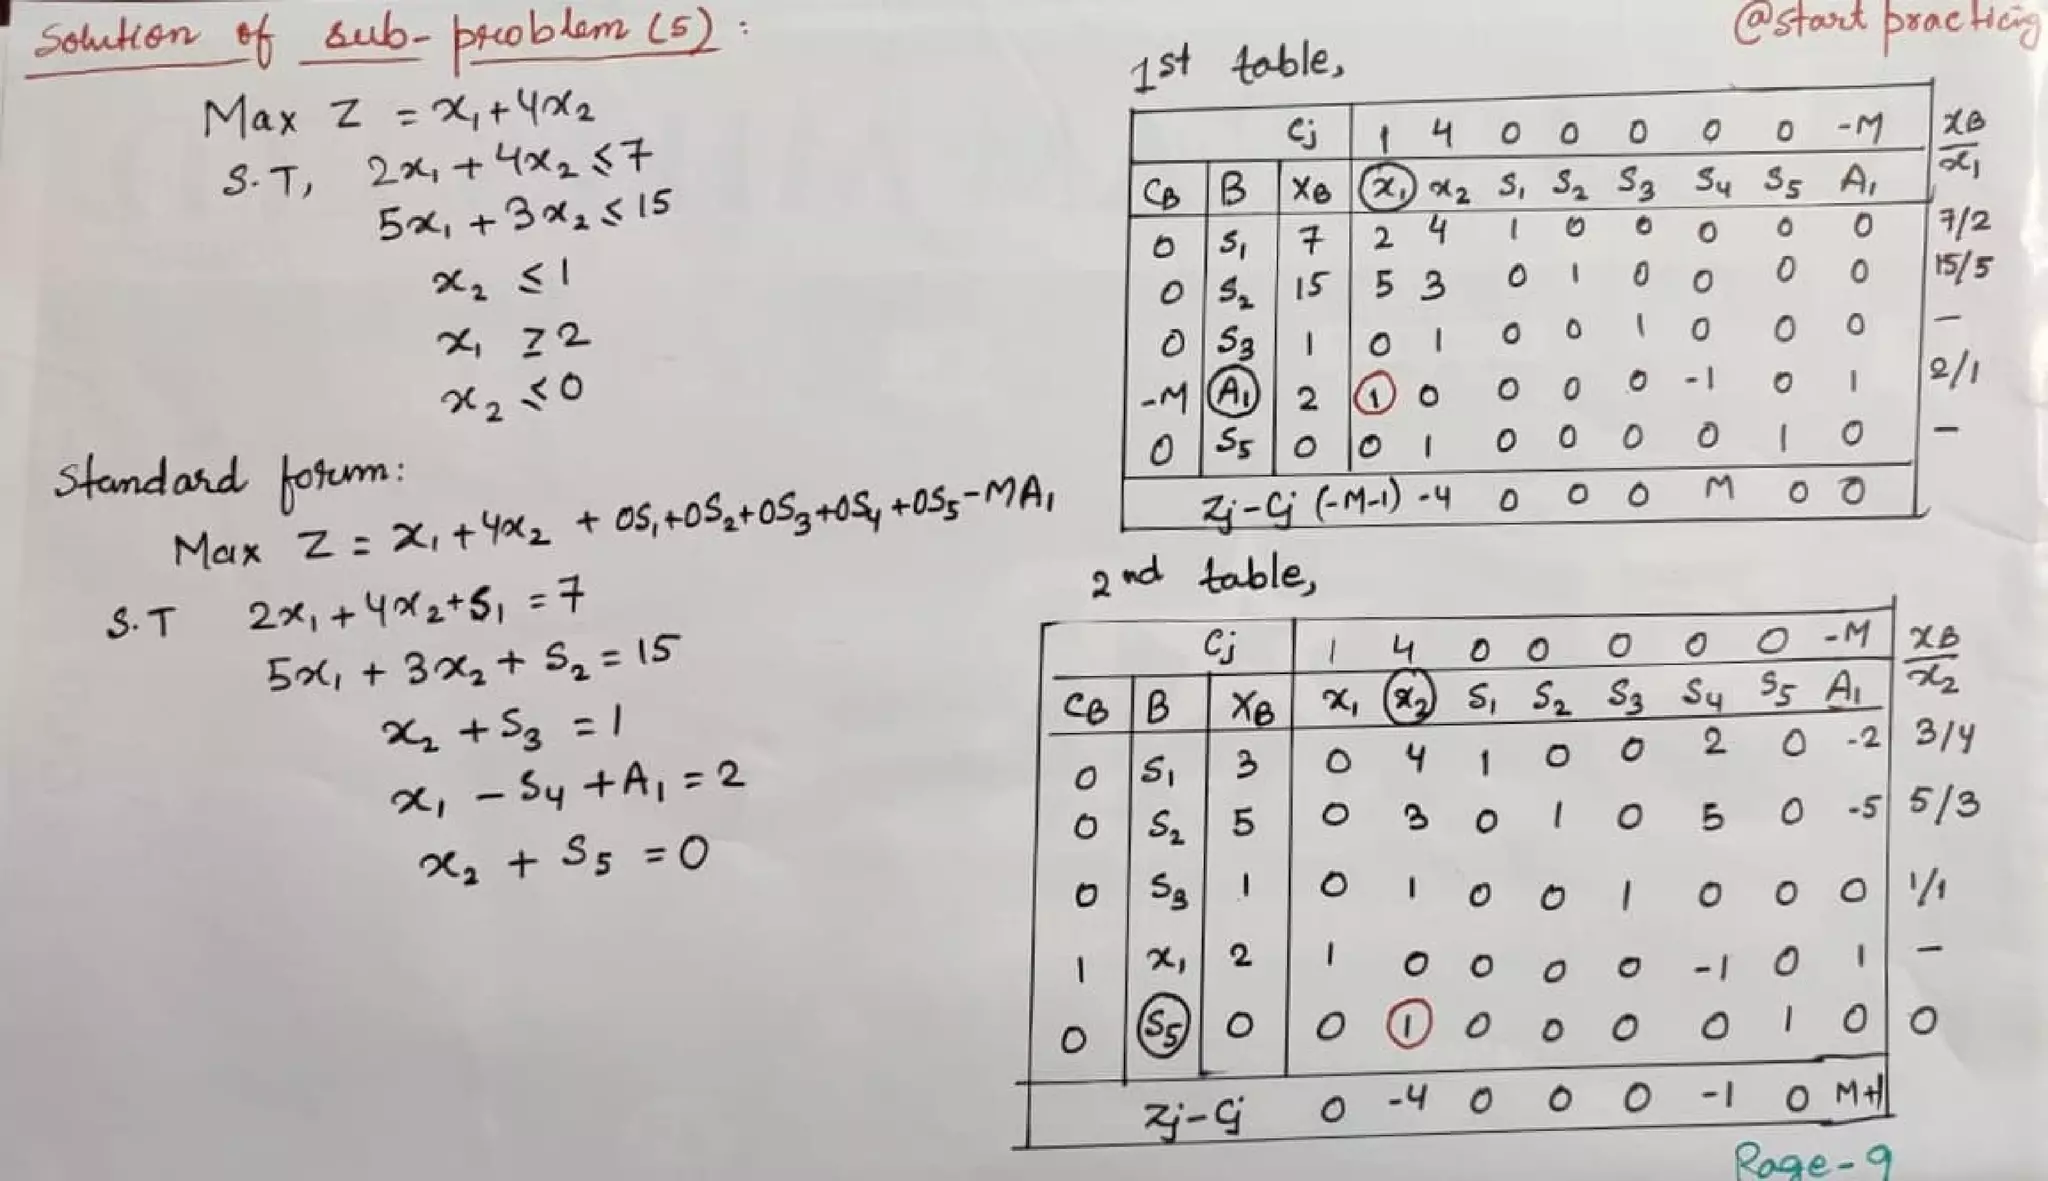 Solution of sub-problem (5) :
Max Z = x₁ + 4x₂
S.T, 2x₁ + 4x₂ ≤ 7
5x₁ + 3x₂ ≤ 15
x₂ ≤ 1
x₁ ≥ 2
x₂ ≤ 0
Standard form:
Max Z = x₁ + 4x₂ + 0S₁+0S₂+0S₃+0S₄+0S₅-MA₁
S.T 2x₁ + 4x₂+S₁ = 7
5x₁ + 3x₂ + S₂ = 15
x₂ + S₃ = 1
x₁ - S₄ + A₁ = 2
x₂ + S₅ = 0
@start practicing
1st table,
Cj 1 4 0 0 0 0 0 -M XB/x₁
CB B XB x₁ x₂ S₁ S₂ S₃ S₄ S₅ A₁
0 S₁ 7 2 4 1 0 0 0 0 0 7/2
0 S₂ 15 5 3 0 1 0 0 0 0 15/5
0 S₃ 1 0 1 0 0 1 0 0 0 -
-M A₁ 2 1 0 0 0 0 -1 0 1 2/1
0 S₅ 0 0 1 0 0 0 0 1 0 -
Zj-Cj (-M-1) -4 0 0 0 M 0 0
2nd table,
Cj 1 4 0 0 0 0 0 -M XB/x₂
CB B XB x₁ x₂ S₁ S₂ S₃ S₄ S₅ A₁
0 S₁ 3 0 4 1 0 0 2 0 -2 3/4
0 S₂ 5 0 3 0 1 0 5 0 -5 5/3
0 S₃ 1 0 1 0 0 1 0 0 0 1/1
1 x₁ 2 1 0 0 0 0 -1 0 1 -
0 S₅ 0 0 1 0 0 0 0 1 0 0
Zj-Cj 0 -4 0 0 0 -1 0 M+1
Page-9